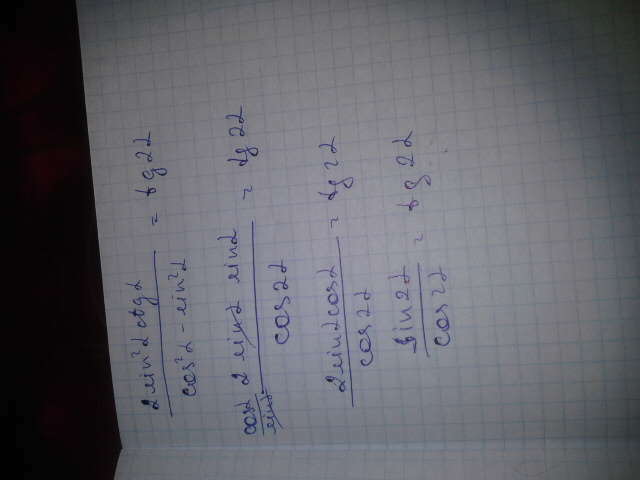 2sin²α ctgα / cos²α - sin²α = tg2α
cosα / sinα 2 sinα sinα / cos2α = tg2α
2sinαcosα / cos2α = tg2α
sin2α / cos2α = tg2α.